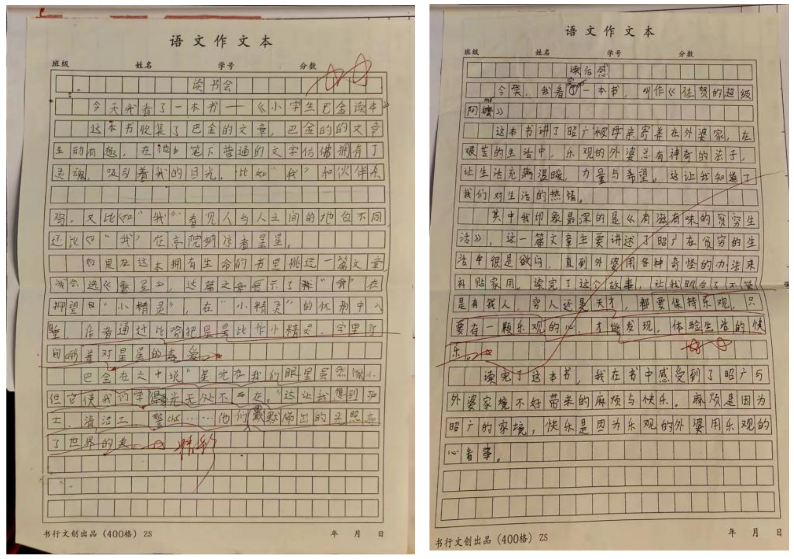 语文作文本
班级 姓名 学号 分数
读书会
今天我看了一本书——《小学生巴金读本》
这本书收集了巴金的文章，巴金的的文章
生动有趣，在他笔下普通的文字仿佛拥有了
灵魂，吸引着我的目光。比如“我”和伙伴
又比如“我”看见人与人之间的地位不同
还比如“我”在
如果在这本拥有生命的书里挑选一篇文章
我会选《繁星》，这篇文章
仰望“小精灵”，在“小精灵”的怀抱中入
睡，作者通过比喻把星星比作小精灵，字里行
间
对星星的喜爱。
巴金在文中说“星光在我们眼里虽然微小
但它使我们觉得光明无处不在，”这让我想到
士，清洁工、警察……他们默默
了世界的 精彩
书行文创出品（400格）2S 年 月 日
语文作文本
班级 姓名 学号 分数
读后感
今天，我看了一本书，叫作《佐贺的超级
阿嬷》
这本书讲了昭广被母亲寄养在外婆家，在
艰苦的生活中，乐观的外婆总有神奇的法子，
让生活充满温暖，力量与希望，这让我知道了
我们对生活的热情。
其中我印象最深的是《有滋有味的贫穷生
活》，这一篇文章主要讲述了昭广在贫穷的生
活中很是郁闷，直到外婆用各种奇怪的办法来
补贴家用，读完了这个故事，让我明白了不管
是有钱人，穷人还是天才，都要保持乐观，只
要有一颗乐观的心，才能发现，体验生活的快
乐。
读完了这本书，我在书中感受到了昭广与
外婆家境不好带来的麻烦与快乐。麻烦是因为
昭广的家境，快乐是因为乐观的外婆用乐观的
心
书行文创出品（400格）2S 年 月 日